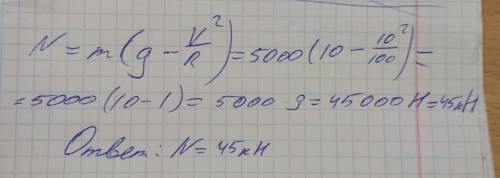 N = m(g - V²/R) = 5000(10 - 10²/100) =
= 5000(10-1) = 5000·9 = 45000 Н = 45кН
Ответ: N = 45кН